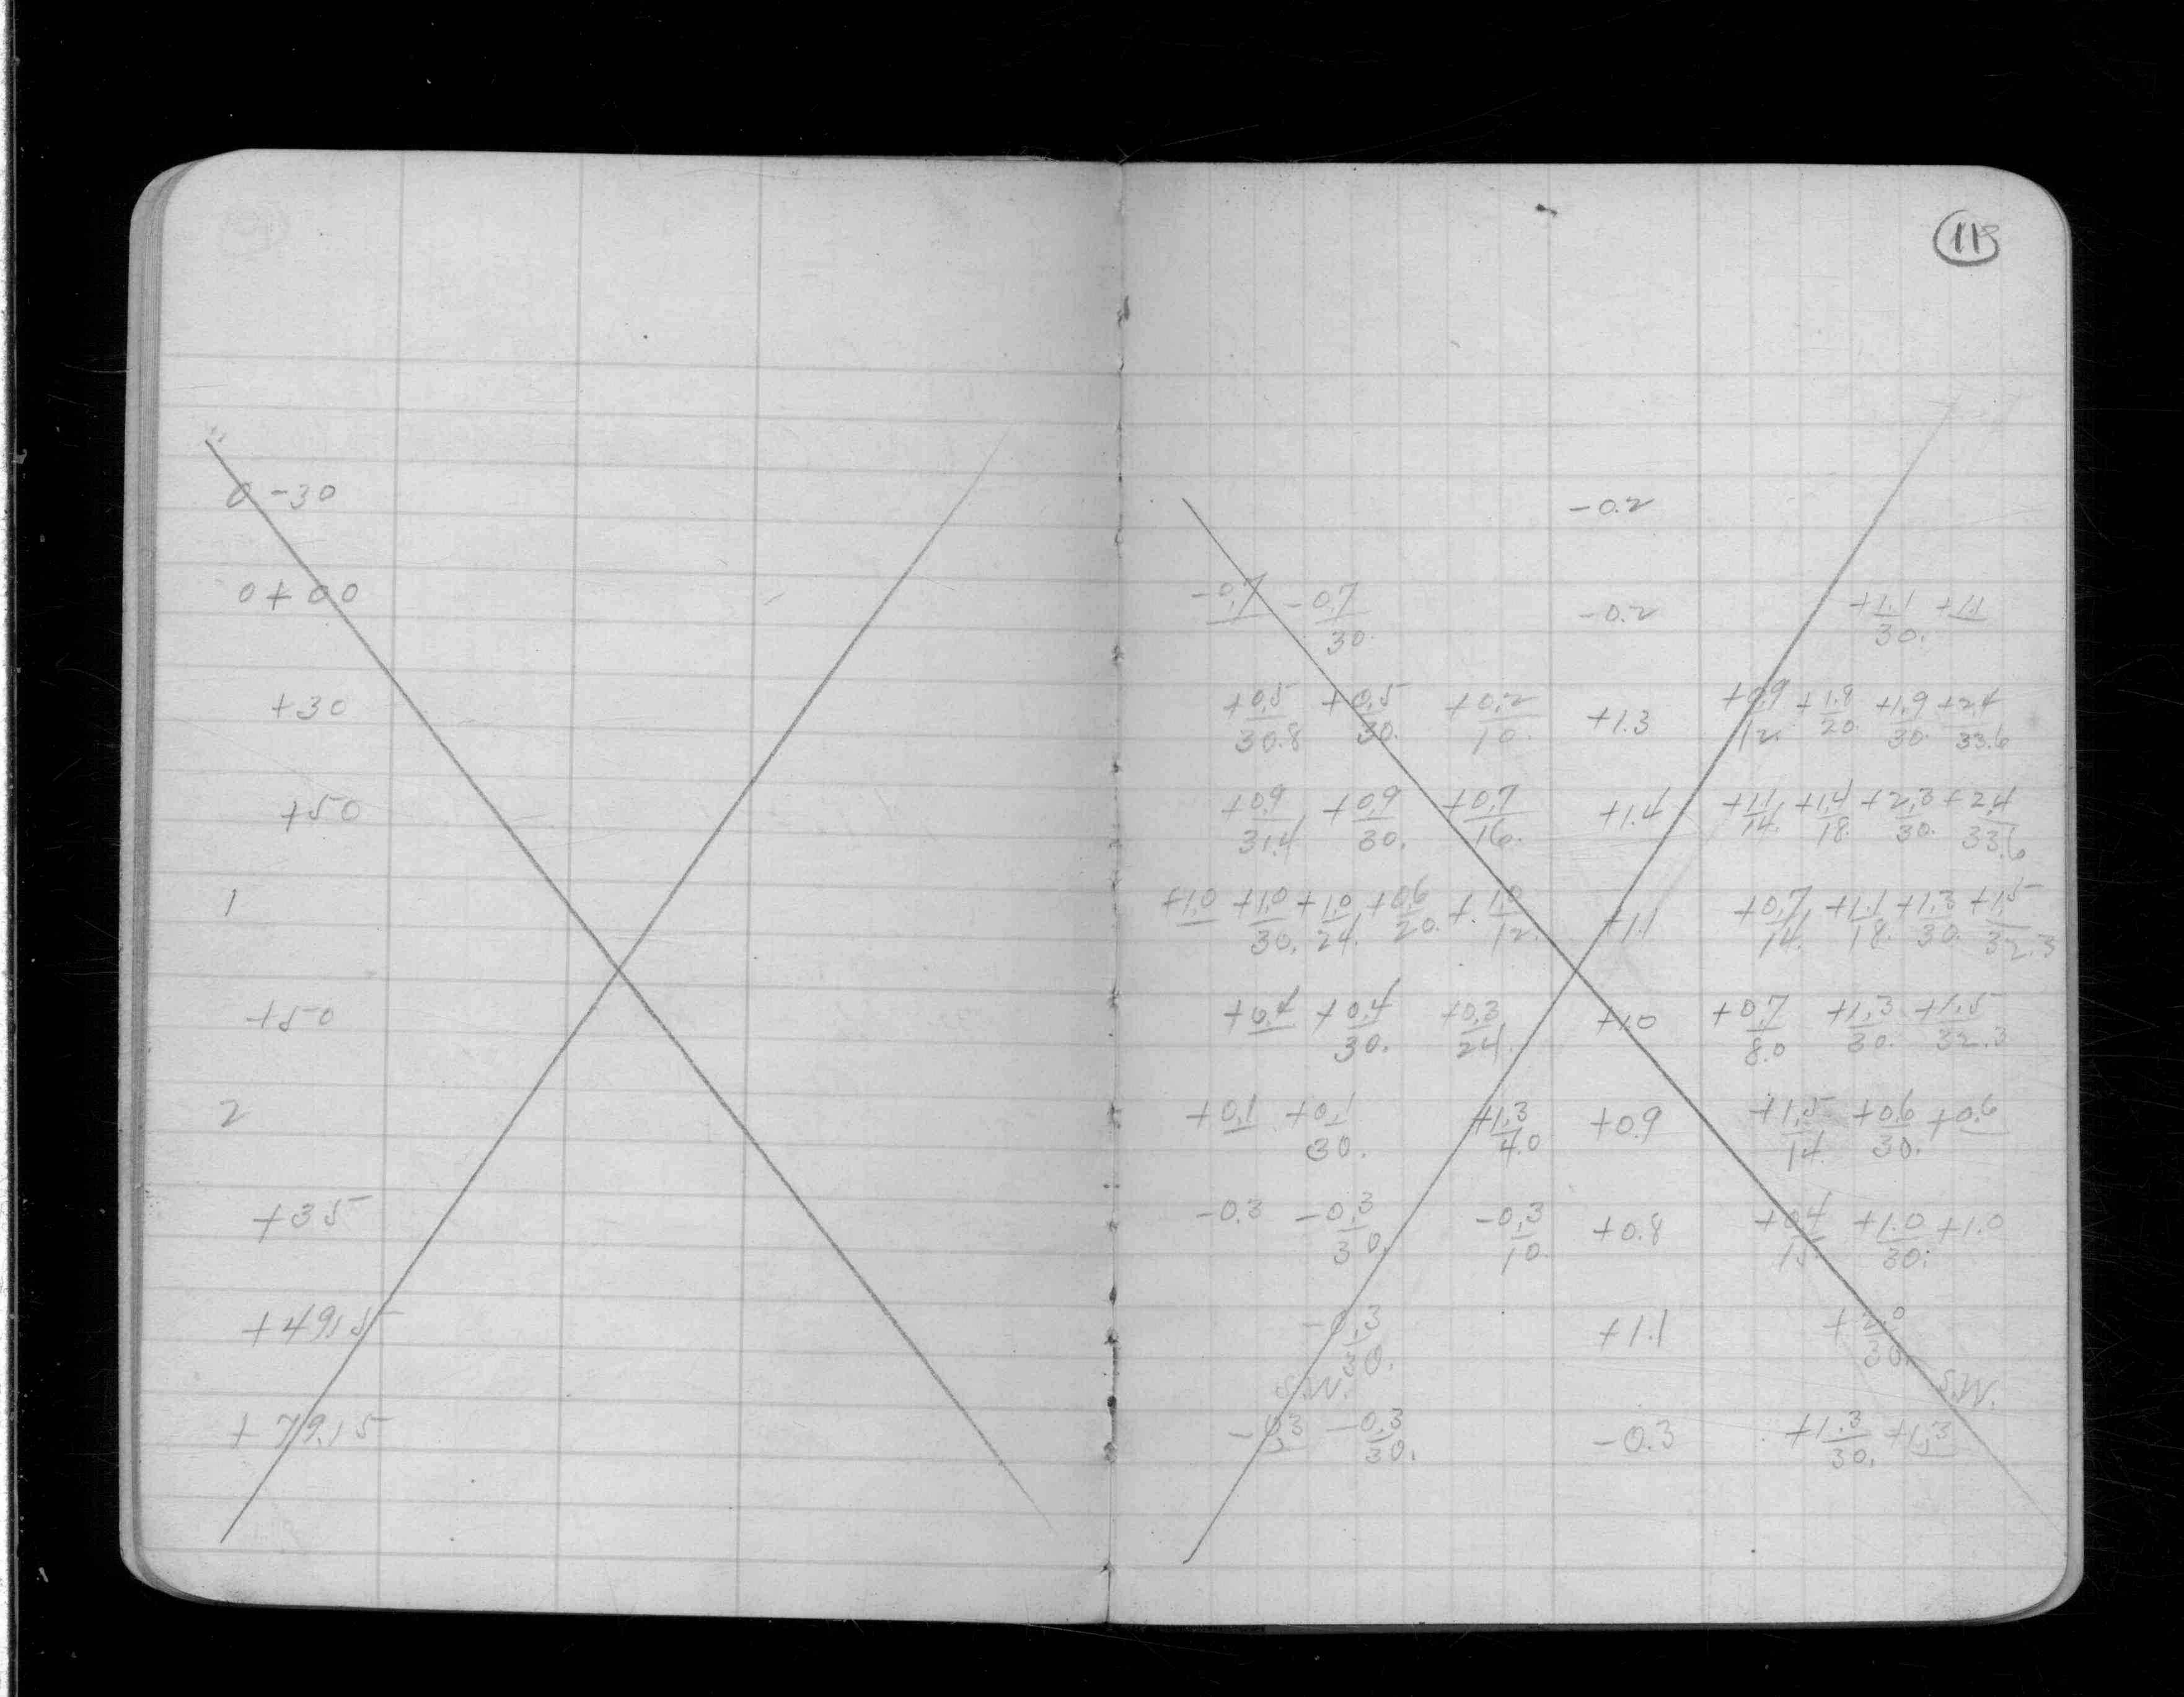 113
0 -30 -0.2
0+00 -0.7 -0.7/30. -0.2 +1.1/30. +1.1
+30 +0.5/30.8 +0.5/30. +0.2/10. +1.3 +0.9/12. +1.9/20. +1.9/30. +2.4/33.6
+50 +0.9/31.4 +0.9/30. +0.7/16. +1.4 +1.1/14. +1.4/18. +2.3/30. +2.4/33.6
1 +1.0 +1.0/30. +1.0/24. +0.6/20. +1.0/12. +1.1 +0.7/14. +1.1/18. +1.3/30. +1.5/32.3
+50 +0.4 +0.4/30. +0.3/24. +1.0 +0.7/8.0 +1.3/30. +1.5/32.3
2 +0.1 +0.1/30. +1.3/4.0 +0.9 +1.5/14. +0.6/30. +0.6
+35 -0.3 -0.3/30. -0.3/10. +0.8 +0.4/15. +1.0/30. +1.0
+49.15 -0.3/30. +1.1 +2.0/30.
S.W. S.W.
+79.15 -0.3 -0.3/30. -0.3 +1.3/30. +1.3